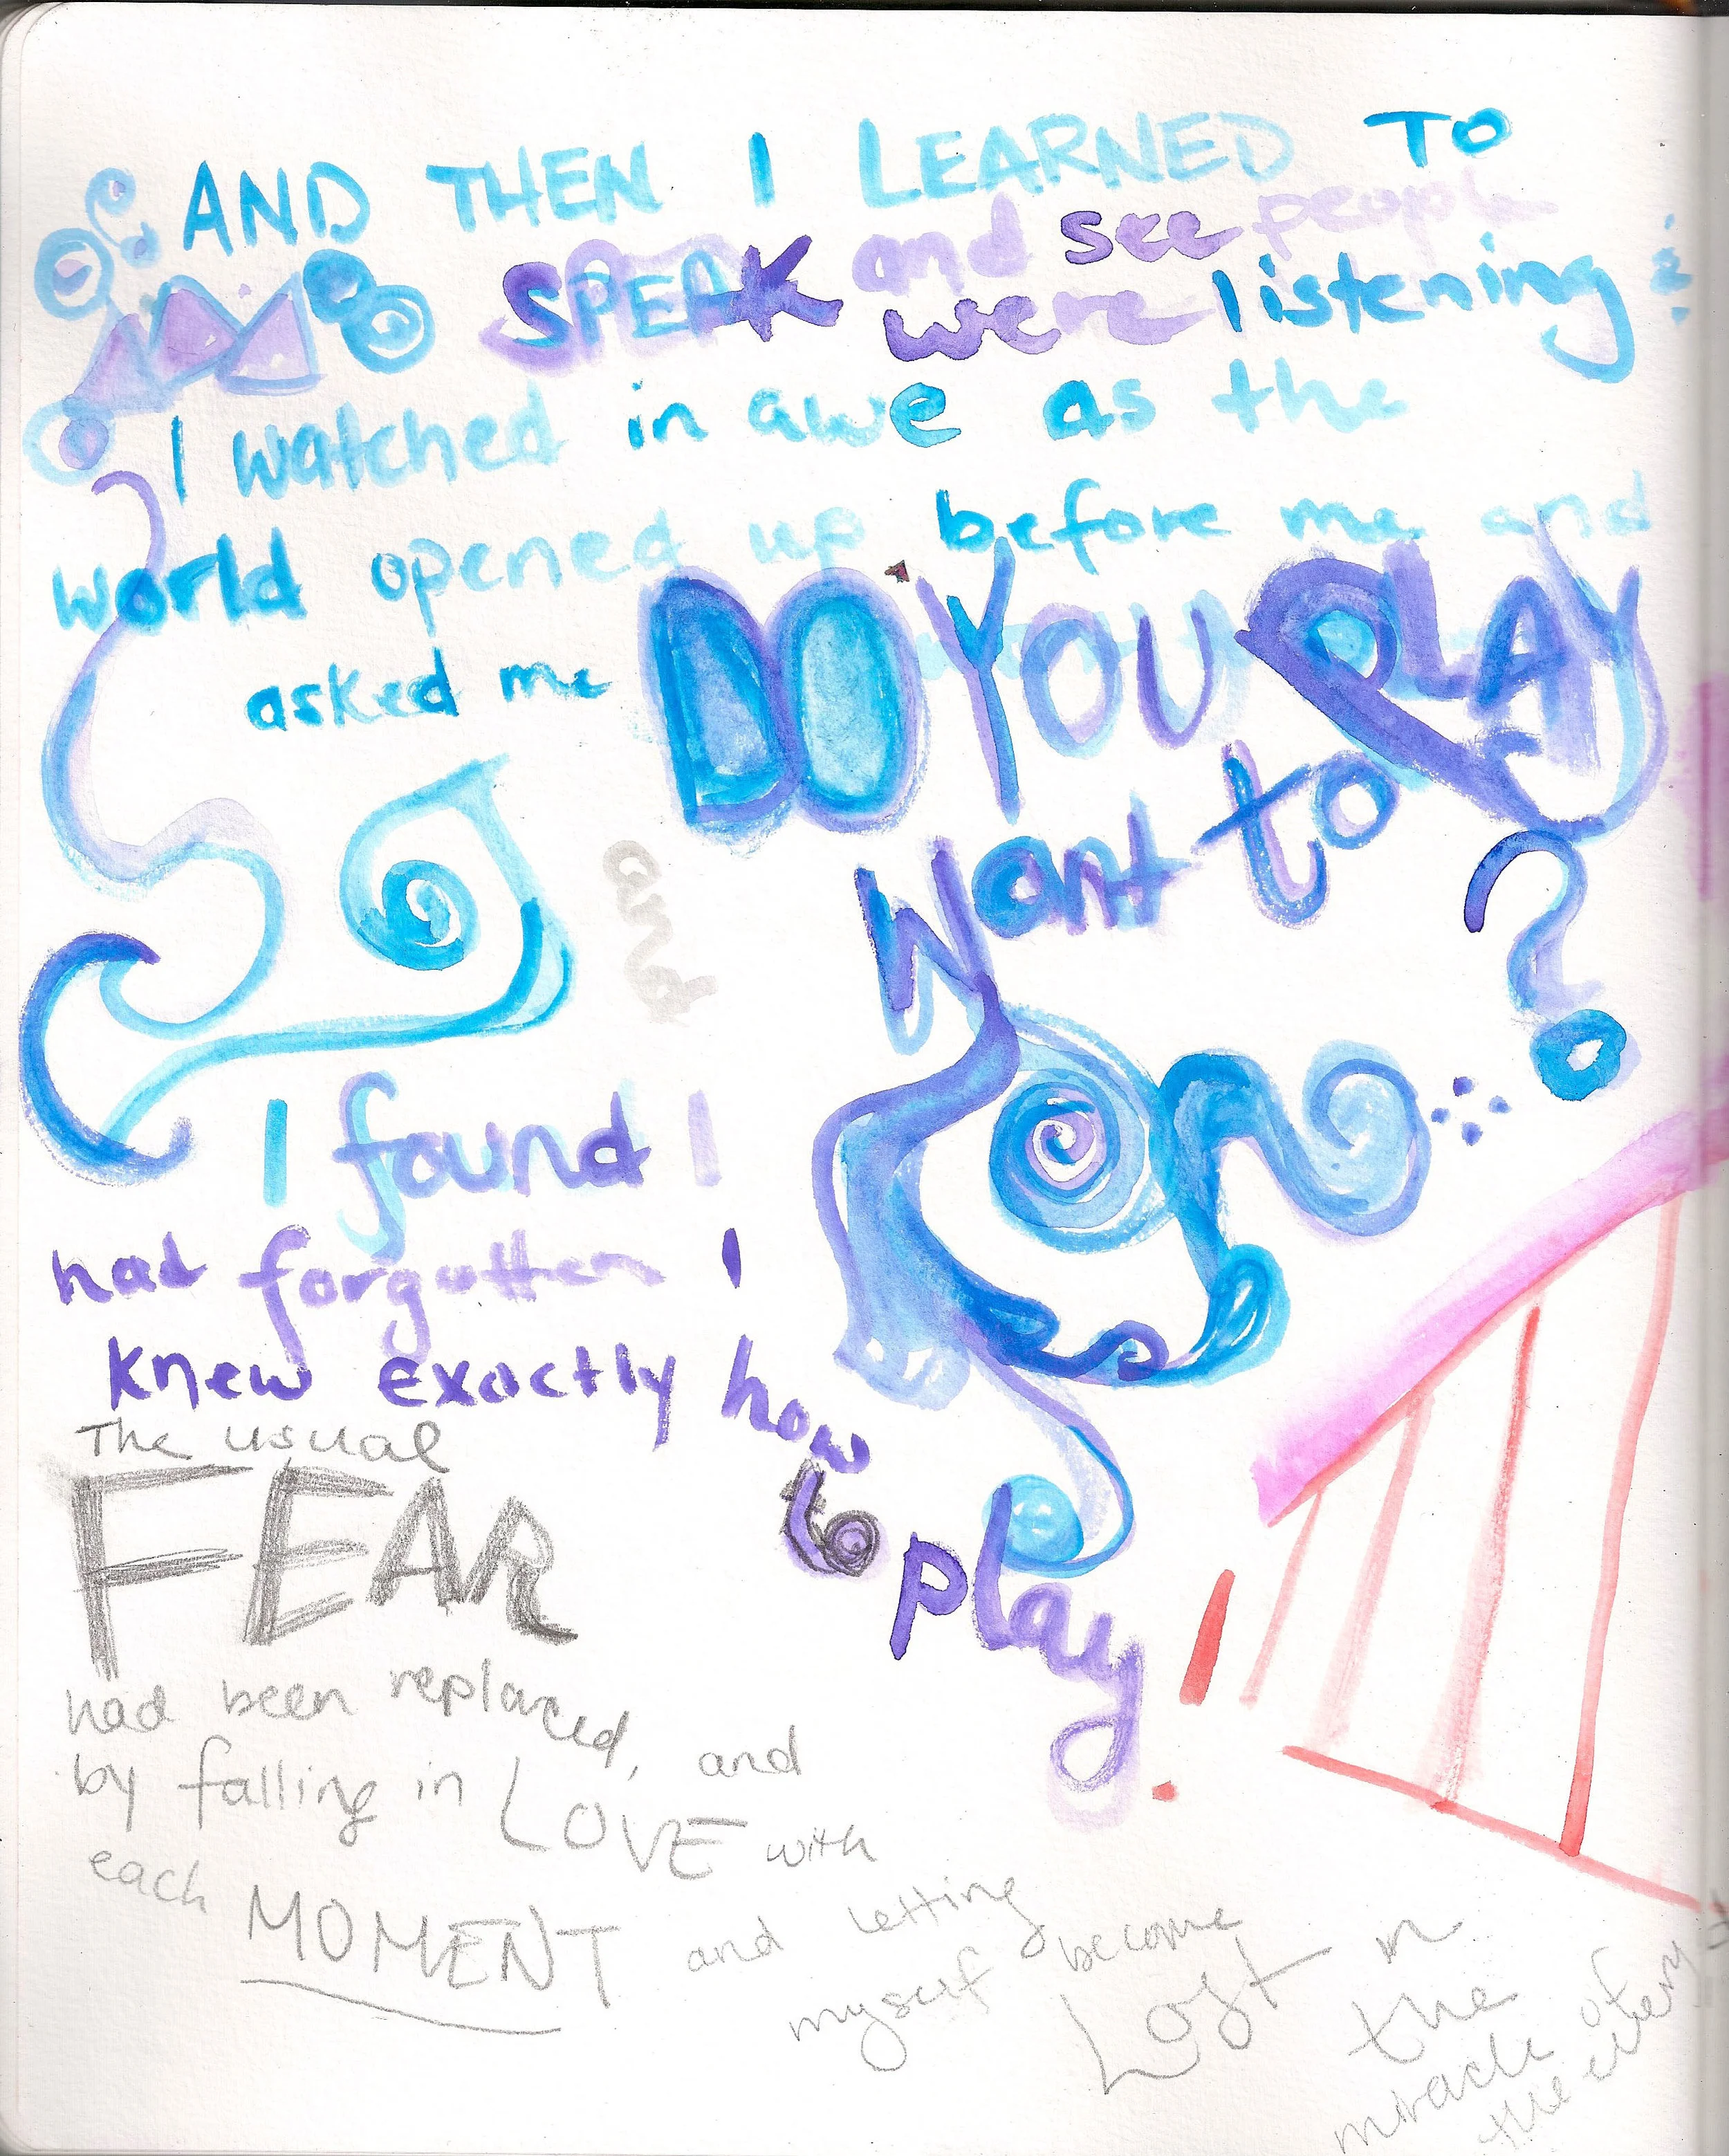 AND THEN I LEARNED TO
SPEAK and see people
were listening
I watched in awe as the
world opened up before me and
asked me DO YOU PLAY
want to
?
and
I found I
had forgotten I
knew exactly how
to
play!
The usual
FEAR
had been replaced, and
by falling in LOVE with
each MOMENT and letting
myself become
Lost in
the
miracle of
the